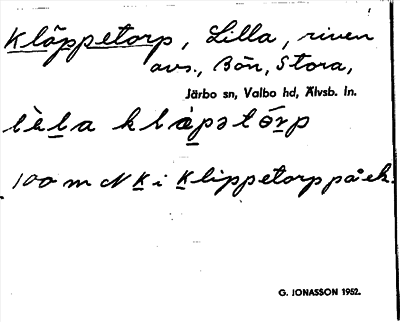 Kläppetorp, Lilla, riven
avs., Bön, Stora,
Järbo sn, Valbo hd, Älvsb. ln.
lèla klapstórp
100 m N K i Klippetorp på ek.
G. JONASSON 1952.